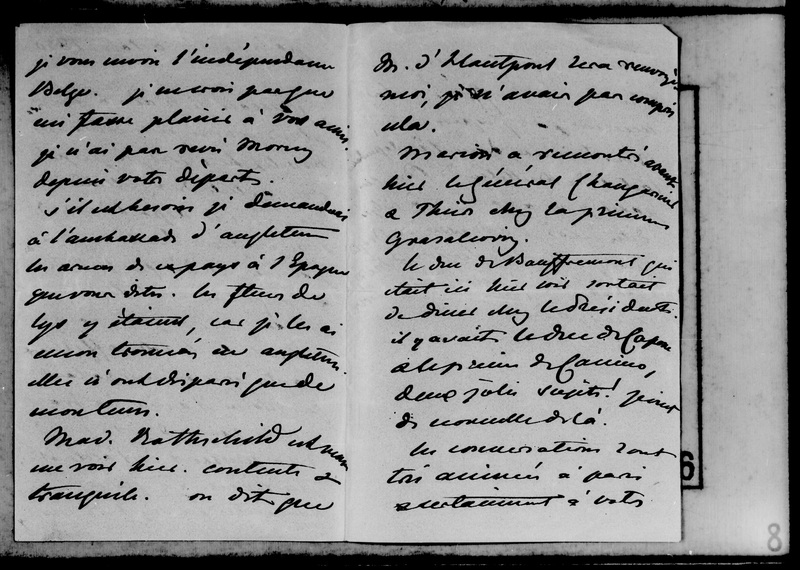 je vous envoie l'indépendance
Belge. je ne crois pas que
fasse plaisir à vos amis.
je n'ai pas revu Morny
depuis votre départ.
s'il est besoin je demanderai
à l'ambassade d'angleterre
les armes de ce pays à l'Epoque
que vous dites. les fleurs de
lys y étaient, car je les ai
encore trouvées en angleterre.
elles n'ont disparu que de
mon tems.
Mad. Rothschild est venue
me voir hier. contente &
tranquile. on dit que
M. d'Hautpoul sera renvoyé
moi, je n'avais pas compris
cela.
Marion a rencontré avant
hier le Général Changarnier
& Thiers chez la princesse
Grasalcovicz.
le duc de Bauffremont qui
était ici hier soir sortait
de diner chez le Président.
il y avait le duc de
& le prince de Canino,
deux jolis sujets! point
de nouvelle de là.
les conversations sont
très animées à paris
à votre
6
8